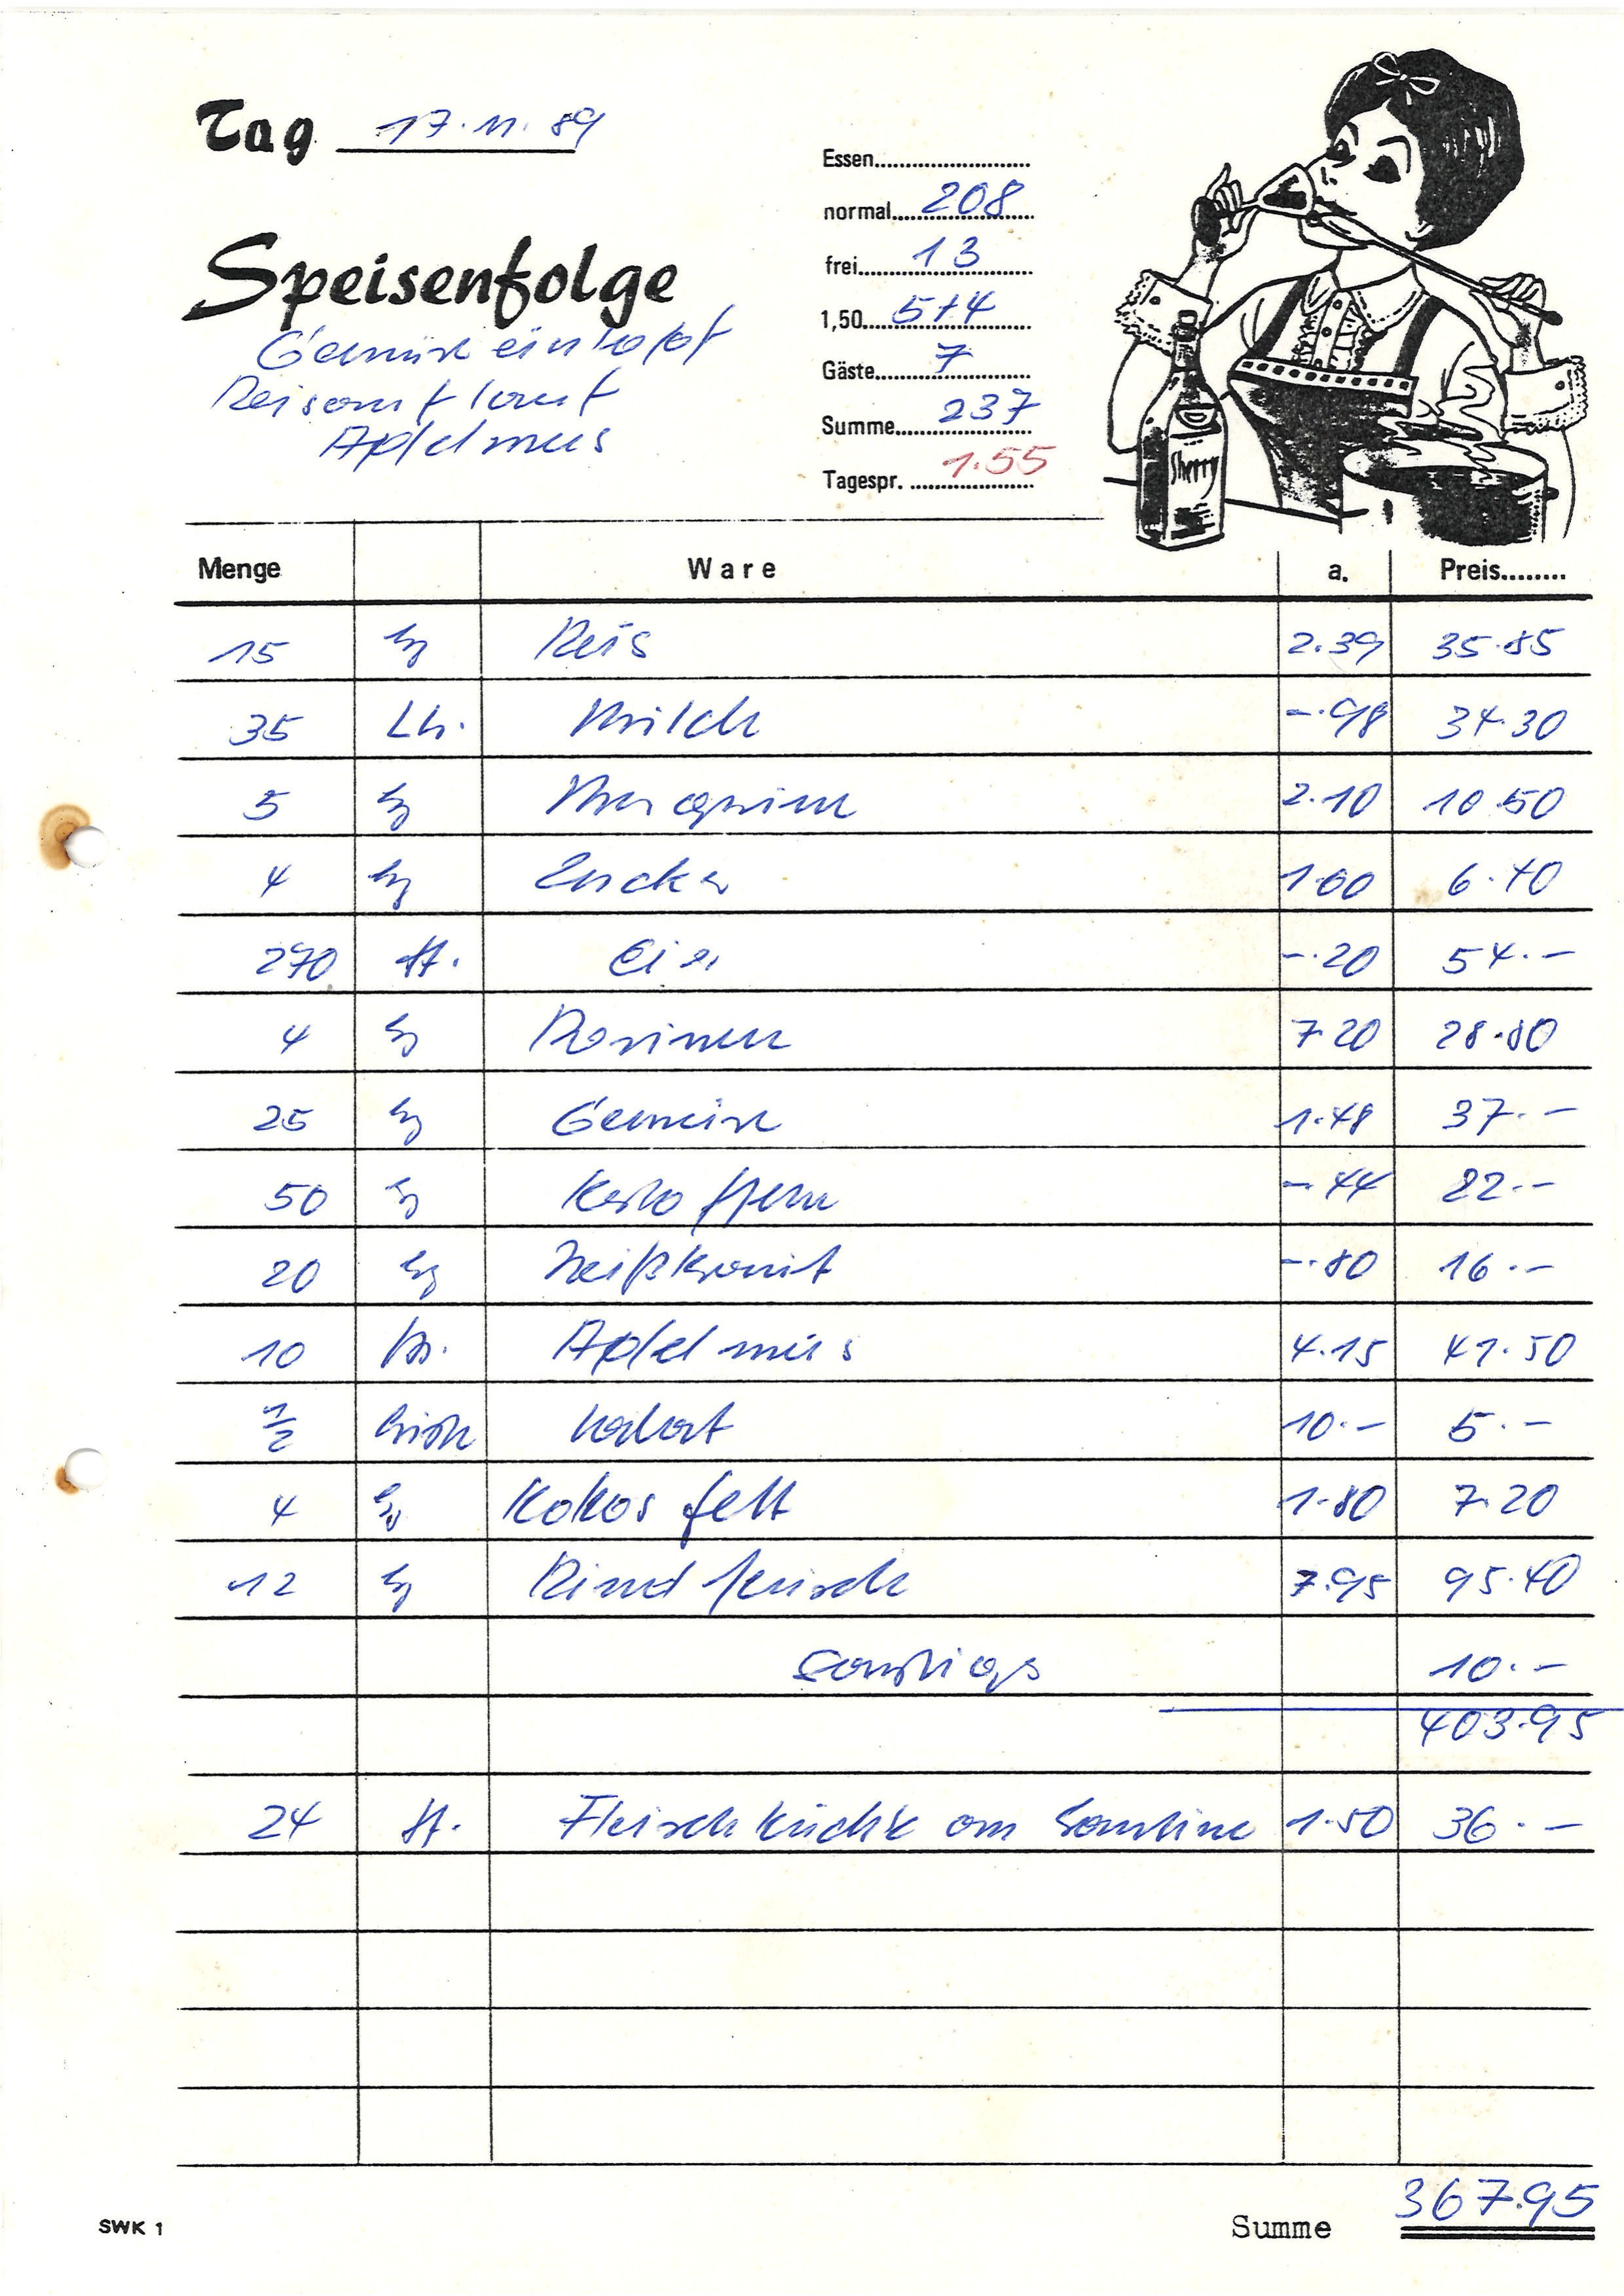 Tag 17.11.89
Speisenfolge
Gemüseeintopf
Reisauflauf
Apfelmus
Essen
normal 208
frei 13
1,50 5+4
Gäste 7
Summe 237
Tagespr. 1.55
Sherry
Menge Ware a. Preis
15 kg Reis 2.39 35.85
35 Ltr. Milch -.98 34.30
5 kg Margarine 2.10 10.50
4 kg Zucker 1.60 6.40
270 St. Eier -.20 54.-
4 kg Rosinen 7.20 28.80
25 kg Gemüse 1.48 37.-
50 kg Kartoffeln -.44 22.-
20 kg Weißkraut -.80 16.-
10 Ds. Apfelmus 4.15 41.50
1/2 10.- 5.-
4 kg Kokosfett 1.80 7.20
12 kg Rindfleisch 7.95 95.40
Sonstiges 10.-
403.95
24 St. Fleischküchle an Kantine 1.50 36.-
SWK 1
Summe 367.95